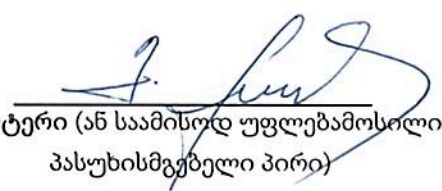 ტერი (ან საამისოდ უფლებამოსილი
პასუხისმგებელი პირი)